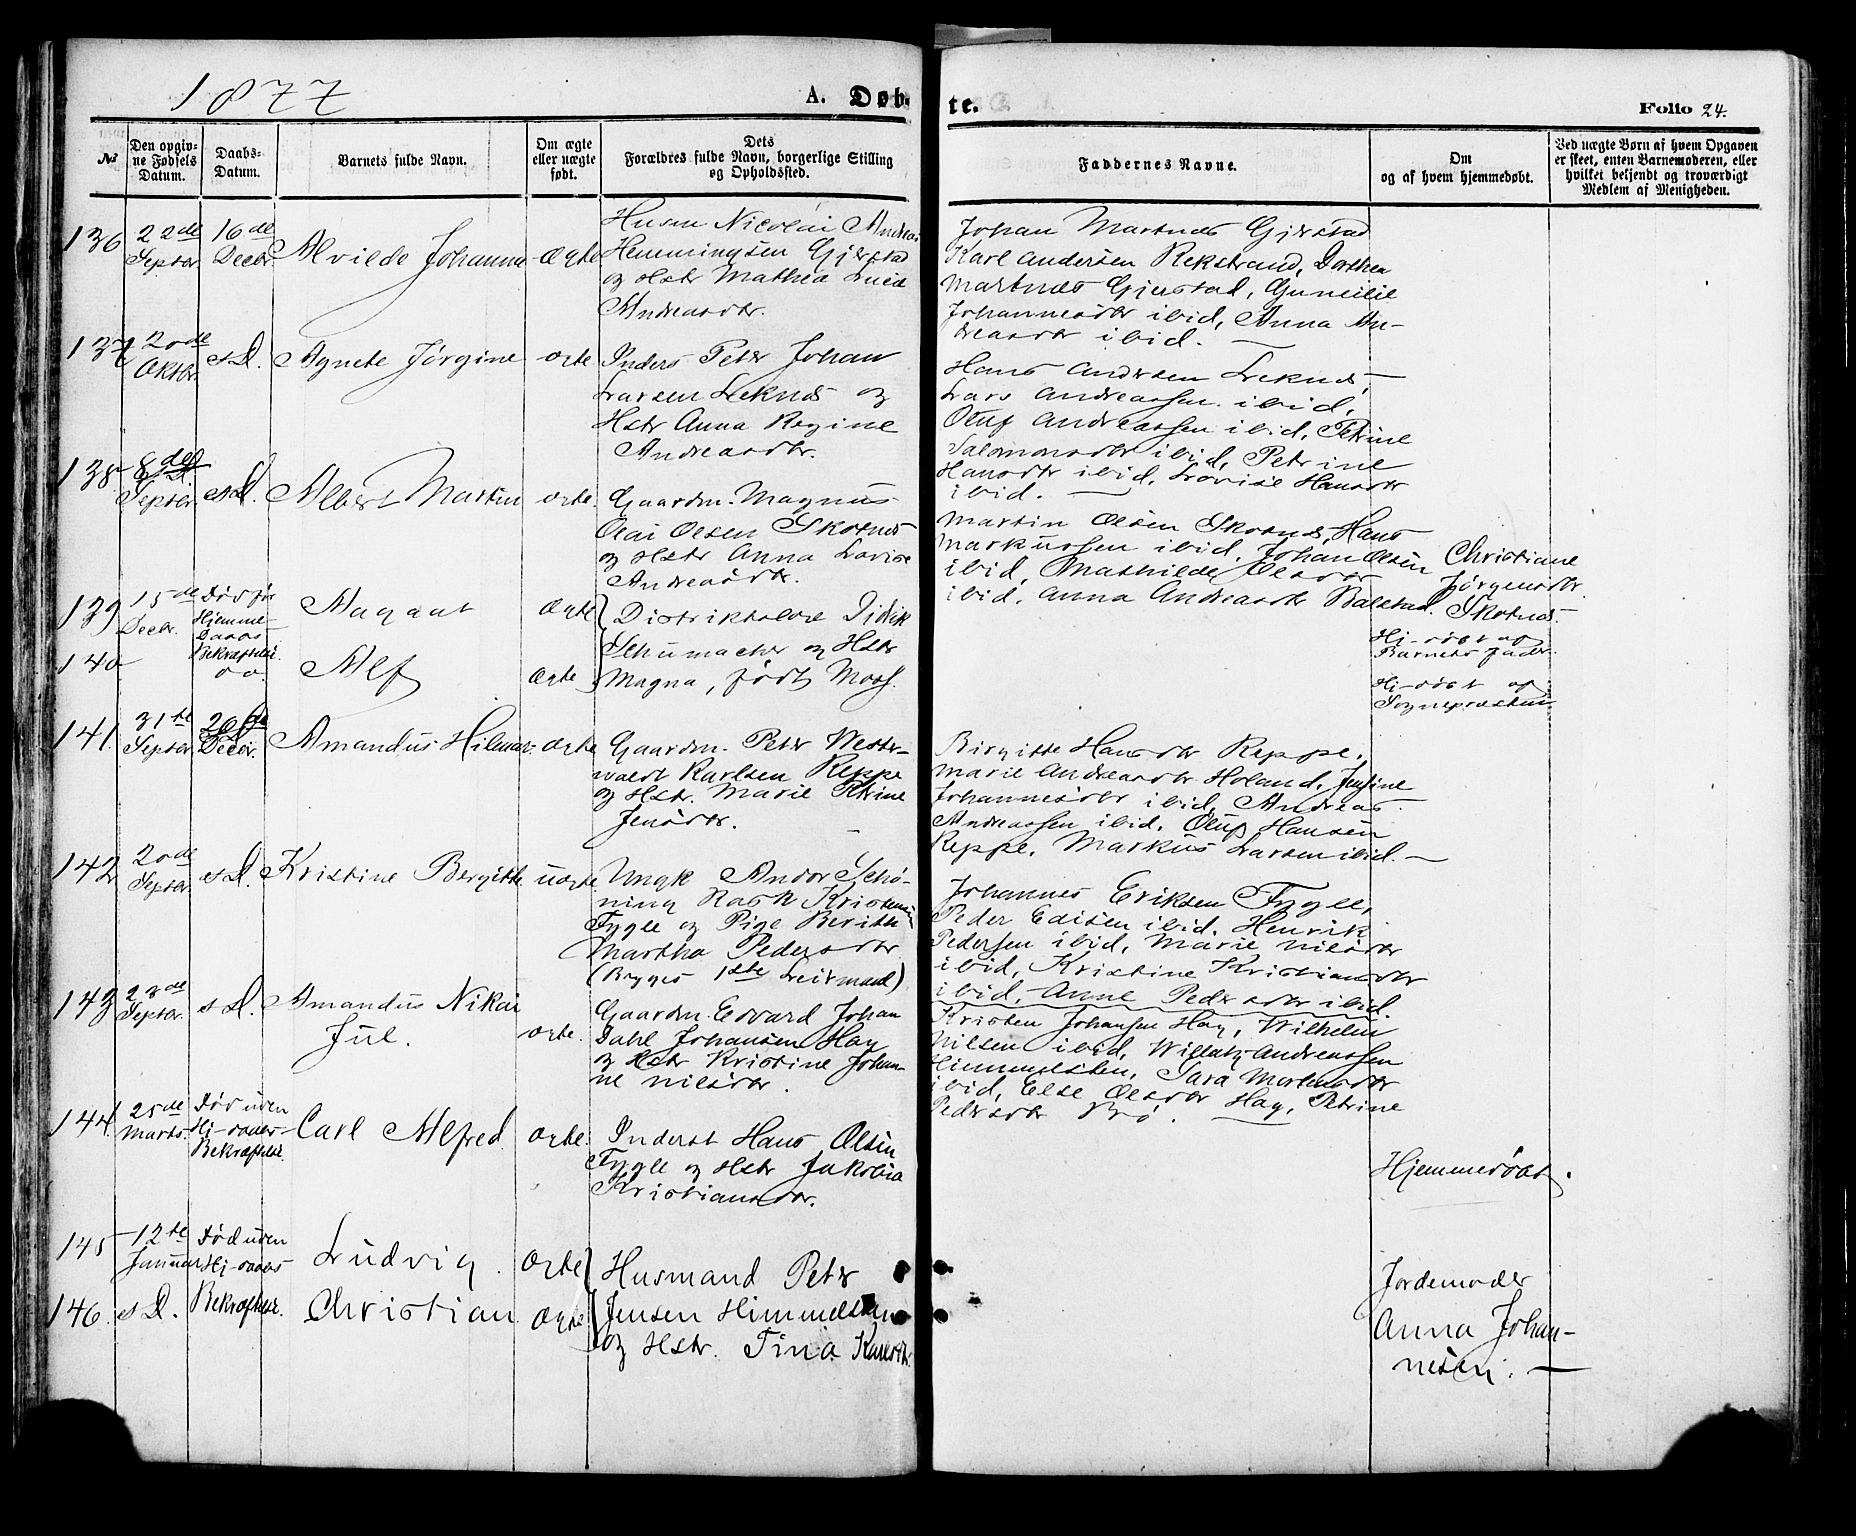 1877
A. Døb-
te.
Folio 24.
№
Den opgiv-
ne Fødsels
Datum.
Daabs-
Datum.
Barnets fulde Navn.
Om ægte
eller uægte
født.
Dets
Forældres fulde Navn, borgerlige Stilling
og Opholdssted.
Faddernes Navne.
Om
og af hvem hjemmedøbt.
Ved uægte Børn af hvem Opgaven
er skeet, enten Barnemoderen, eller
hvilket bekjendt og troværdigt
Medlem af Menigheden.
136
22de
Septbr.
16de
Decbr.
Alvilde Johanna
ægte
Husm Nicolai Andreas
Hemmingsen Gjerstad
og Hstr Mathea Lucie
Andreasdtr.
Johan Martnes Gjerstad
Karl Andersen Rekstrand, Dorthea
Martnes Gjerstad, Gunelie
Johannesdtr ibid, Anna An-
dreasdtr ibid. —
137
20de
Oktbr.
s.D.
Agnete Jørgine
ægte
Inders Peter Johan
Larsen Leknes og
Hstr Anna Regine
Andreasdtr.
Hans Andersen Leknes,
Lars Andreassen ibid,
Oluf Andreassen ibid, Petrine
Salomonsdtr ibid, Petrine
Hansdtr ibid, Lovise Hansdtr
ibid. —
138
8de
Septbr.
s.D.
Albert Martin
ægte.
Gaardm. Magnus
Olai Olsen Skotnes
og Hstr Anna Lovise
Andreasdtr.
Martin Olsen Skotnes, Hans
Markussen ibid, Johan Olsen
ibid, Mathilde Olsdtr
ibid, Anna Andreasdtr Balstad.
Christiane
Jørgensdtr.
Skotnes.
139
15de
Decbr.
Død før
Hjemme-
Daabs
Bekræftelse.
Magaat
Ægte
Distriktslæge Didrik
Schumacher og Hstr
Magna, født Moss.
Hj-døbt af
Barnets fader.
140
do.
Alf
Ægte
Hj-døbt af
Sognepræsten
141.
31te
Septbr.
26de
Decbr.
Amandus Hilmar
ægte
Gaardm. Peter Wester-
waldt Karlsen Reppe
og Hstr. Marie Petrine
Jensdtr.
Birgitte Hansdtr Reppe,
Marie Andreasdtr Holand, Jensine
Johannesdtr ibid, Andreas
Andreassen ibid, Oluf Hansen
Reppe, Markus Larsen ibid. —
142
20de
Septbr.
s.D.
Kristine Bergitte
uægte
Ungk Andor Schø-
ning Rask Kristensen
Fygle og Pige Berith
Martha Pedersdtr
(Begges 1ste Leiermaal)
Johannes Eriksen Fygle,
Peder Edisen ibid, Henrik
Pedersen ibid, Marie Nilsdtr
ibid, Kristine Kristiansdtr
ibid, Anne Pedersdtr ibid.
143
23de
Septbr.
s.D.
Amandus Nikai
Jul.
ægte.
Gaardm. Edvard Johan
Dahl Johansen Hag
og Hstr Kristine Johan-
ne Nilsdtr.
Kristen Johansen Hag, Wilhelm
Nilsen ibid, Willatz Andreassen
Himmelsten, Sara Mortensdtr
ibid, Else Olsdtr Hag, Petrine
Pedersdtr Bø. —
144
25de
Marts.
Død uden
Hj-daabs-
Bekræftelse.
Carl Alfred
ægte.
Inderst Hans Olsen
Fygle og Hstr Jakobia
Kristiansdtr.
Hjemmedøbt.
145
12te
Januar
Død uden
Hj-daabs
Bekræftelse.
Ludvig.
Ægte
Husmand Peter
Jensen Himmelsten
og Hstr. Tina Karlsdtr.
Jordemoder
Anna Johan-
nesen. —
146.
s.D.
Christian
ægte